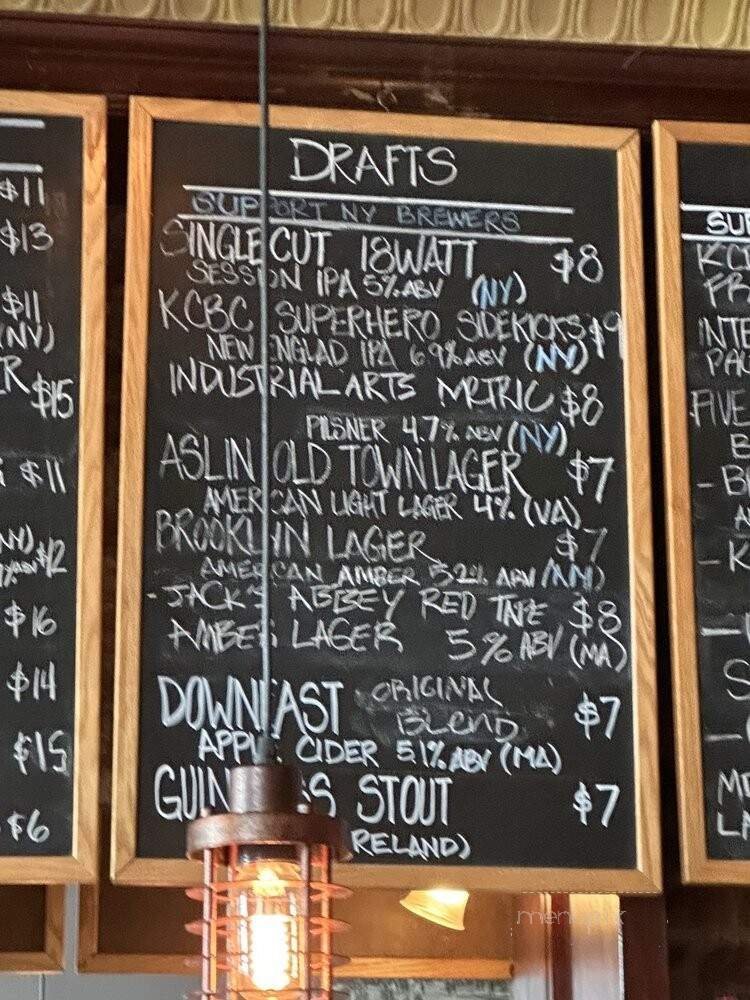 DRAFTS
SUPPORT NY BREWERS
SINGLECUT 18WATT $8
SESSION IPA 5% ABV (NY)
KCBC SUPERHERO SIDEKICKS $9
NEW ENGLAD IPA 6.9% ABV (NY)
INDUSTRIAL ARTS METRIC $8
PILSNER 4.7% ABV (NY)
ASLIN OLD TOWN LAGER $7
AMERICAN LIGHT LAGER 4% (VA)
BROOKLYN LAGER $7
AMERICAN AMBER 5.2% ABV (NY)
- JACK'S ABBEY RED TAPE $8
AMBER LAGER 5% ABV (MA)
DOWNEAST ORIGINAL
BLEND $7
APPLE CIDER 5.1% ABV (MA)
GUINNESS STOUT $7
RELAND)
$11
$13
$11
(NY)
$15
$11
$12
$16
$14
$15
$6
SU
KC
FR
INTE
PAC
FIVE
B
- B
A
- K
S
ME
LA
menupix